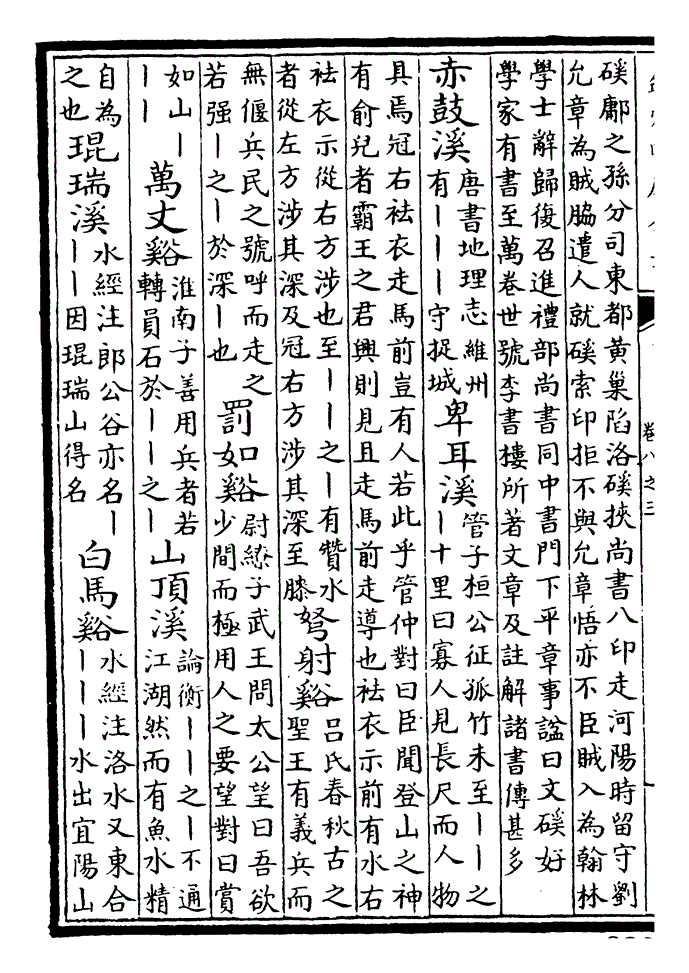 卷八之三
磎鄘之孫分司東都黃巢陷洛磎挾尚書八印走河陽時留守劉
允章為賊脇遣人就磎索印拒不與允章悟亦不臣賊入為翰林
學士辭歸復召進禮部尚書同中書門下平章事諡曰文磎好
學家有書至萬卷世號李書樓所著文章及註解諸書傳甚多
赤鼓溪
唐書地理志維州
有｜｜｜守捉城
卑耳溪
管子桓公征孤竹未至｜｜之
｜十里曰寡人見長尺而人物
具焉冠右袪衣走馬前豈有人若此乎管仲對曰臣聞登山之神
有俞兒者霸王之君興則見且走馬前走導也袪衣示前有水右
袪衣示從右方涉也至｜｜之｜有贊水
者從左方涉其深及冠右方涉其深至膝
弩射谿
呂氏春秋古之
聖王有義兵而
無偃兵民之號呼而走之
若强｜之｜於深｜也
罰如谿
尉繚子武王問太公望曰吾欲
少間而極用人之要望對曰賞
如山｜
｜｜
萬丈谿
淮南子善用兵者若
轉員石於｜｜之｜
山頂溪
論衡｜｜之｜不通
江湖然而有魚水精
自為
之也
琨瑞溪
水經注郎公谷亦名｜
｜｜因琨瑞山得名
白馬谿
水經注洛水又東合
｜｜｜水出宜陽山